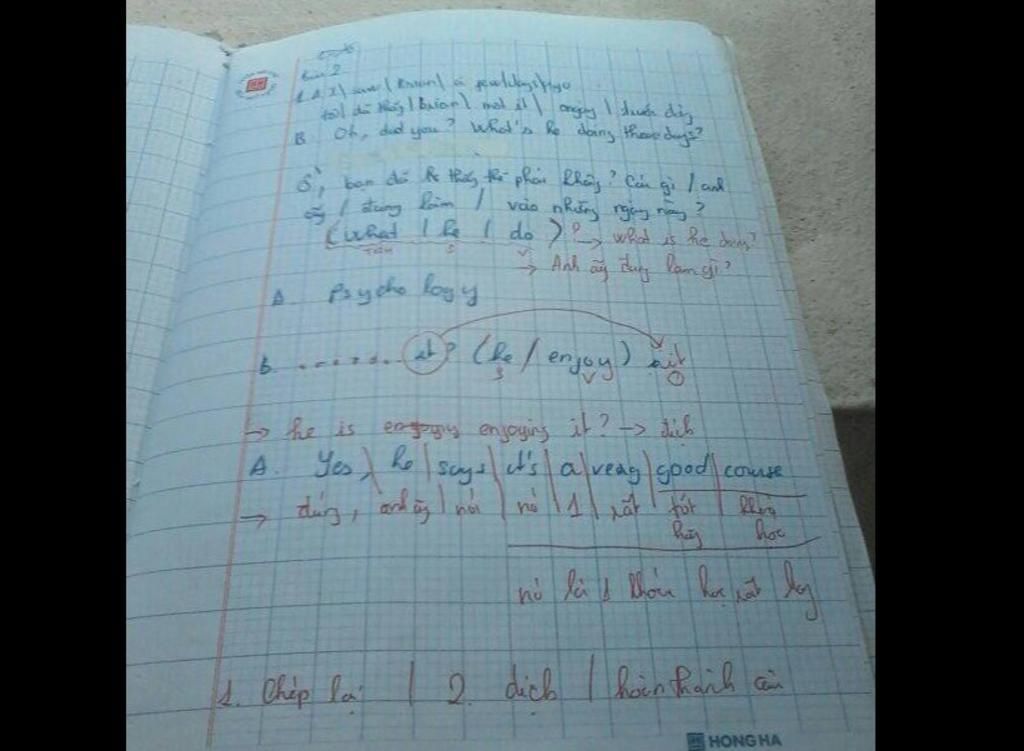 Bài 2
1. A I | saw | Brian | a few | days | ago
tôi | đã thấy | Brian | một ít | ngày | trước đây
B Oh, did you? What's he doing these days?
Ồ, bạn đã thấy phải không? Cái gì / anh
ấy / đang làm / vào những ngày này?
(What / he / do)? → what is he doing?
S V
→ Anh ấy đang làm gì?
A Psychology
B. ........ it? (he / enjoy) it
S V O
→ he is enjoying it? → dịch
A. Yes, he | says | it's | a | very | good | course
→ đúng, anh ấy | nói | nó | 1 | rất | tốt | khóa
hay học
nó là 1 khóa học rất hay
1. Chép lại | 2. dịch | hoàn thành câu
HONG HA